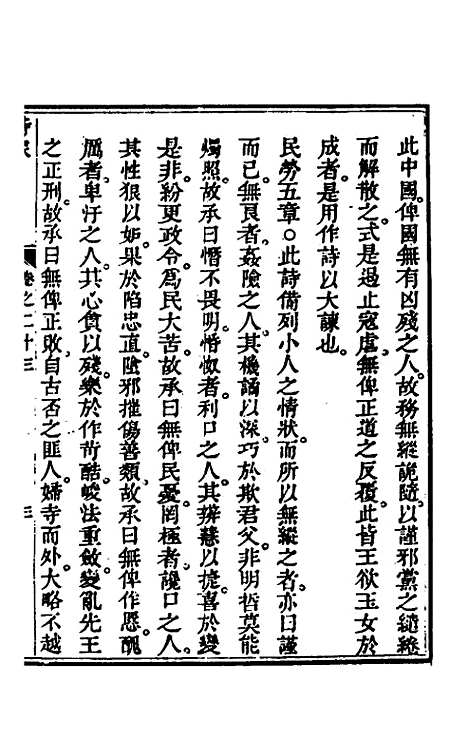 此中國。俾國無有凶殘之人。故務無縱詭隨。以謹邪黨之繾綣
而解散之。式是遏止寇虐。無俾正道之反覆。此皆王欲玉女於
成者。是用作詩以大諫也。
民勞五章○此詩備列小人之情狀。而所以無縱之者。亦曰謹
而已。無良者。姦險之人。其機譎以深。巧於欺君父。非明哲莫能
燭照。故承曰憯不畏明。惛怓者。利口之人。其辨慧以捷。喜於變
是非。紛更政令。爲民大苦。故承曰無俾民憂。罔極者。讒口之人。
其性狠以妒。果於陷忠直。陰邪摧傷善類。故承曰無俾作慝。醜
厲者。卑汙之人。其心貪以殘。樂於作苛酷。峻法重斂。變亂先王
之正刑。故承曰無俾正敗。自古否之匪人。婦寺而外。大略不越
卷之二十三
三